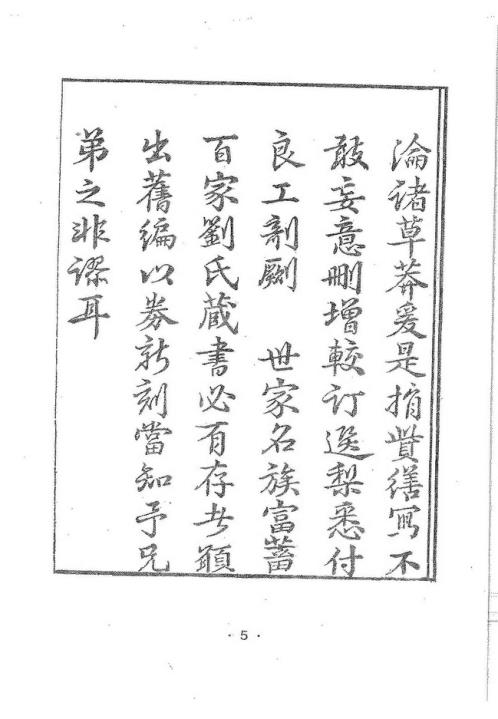 淪諸草莽爰是捐貲繕寫不
敢妄意刪增較訂選梨悉付
良工剞劂　世家名族富蓄
百家劉氏藏書必有存者顧
出舊編以券新刻當知予兄
弟之非謬耳
· 5 ·